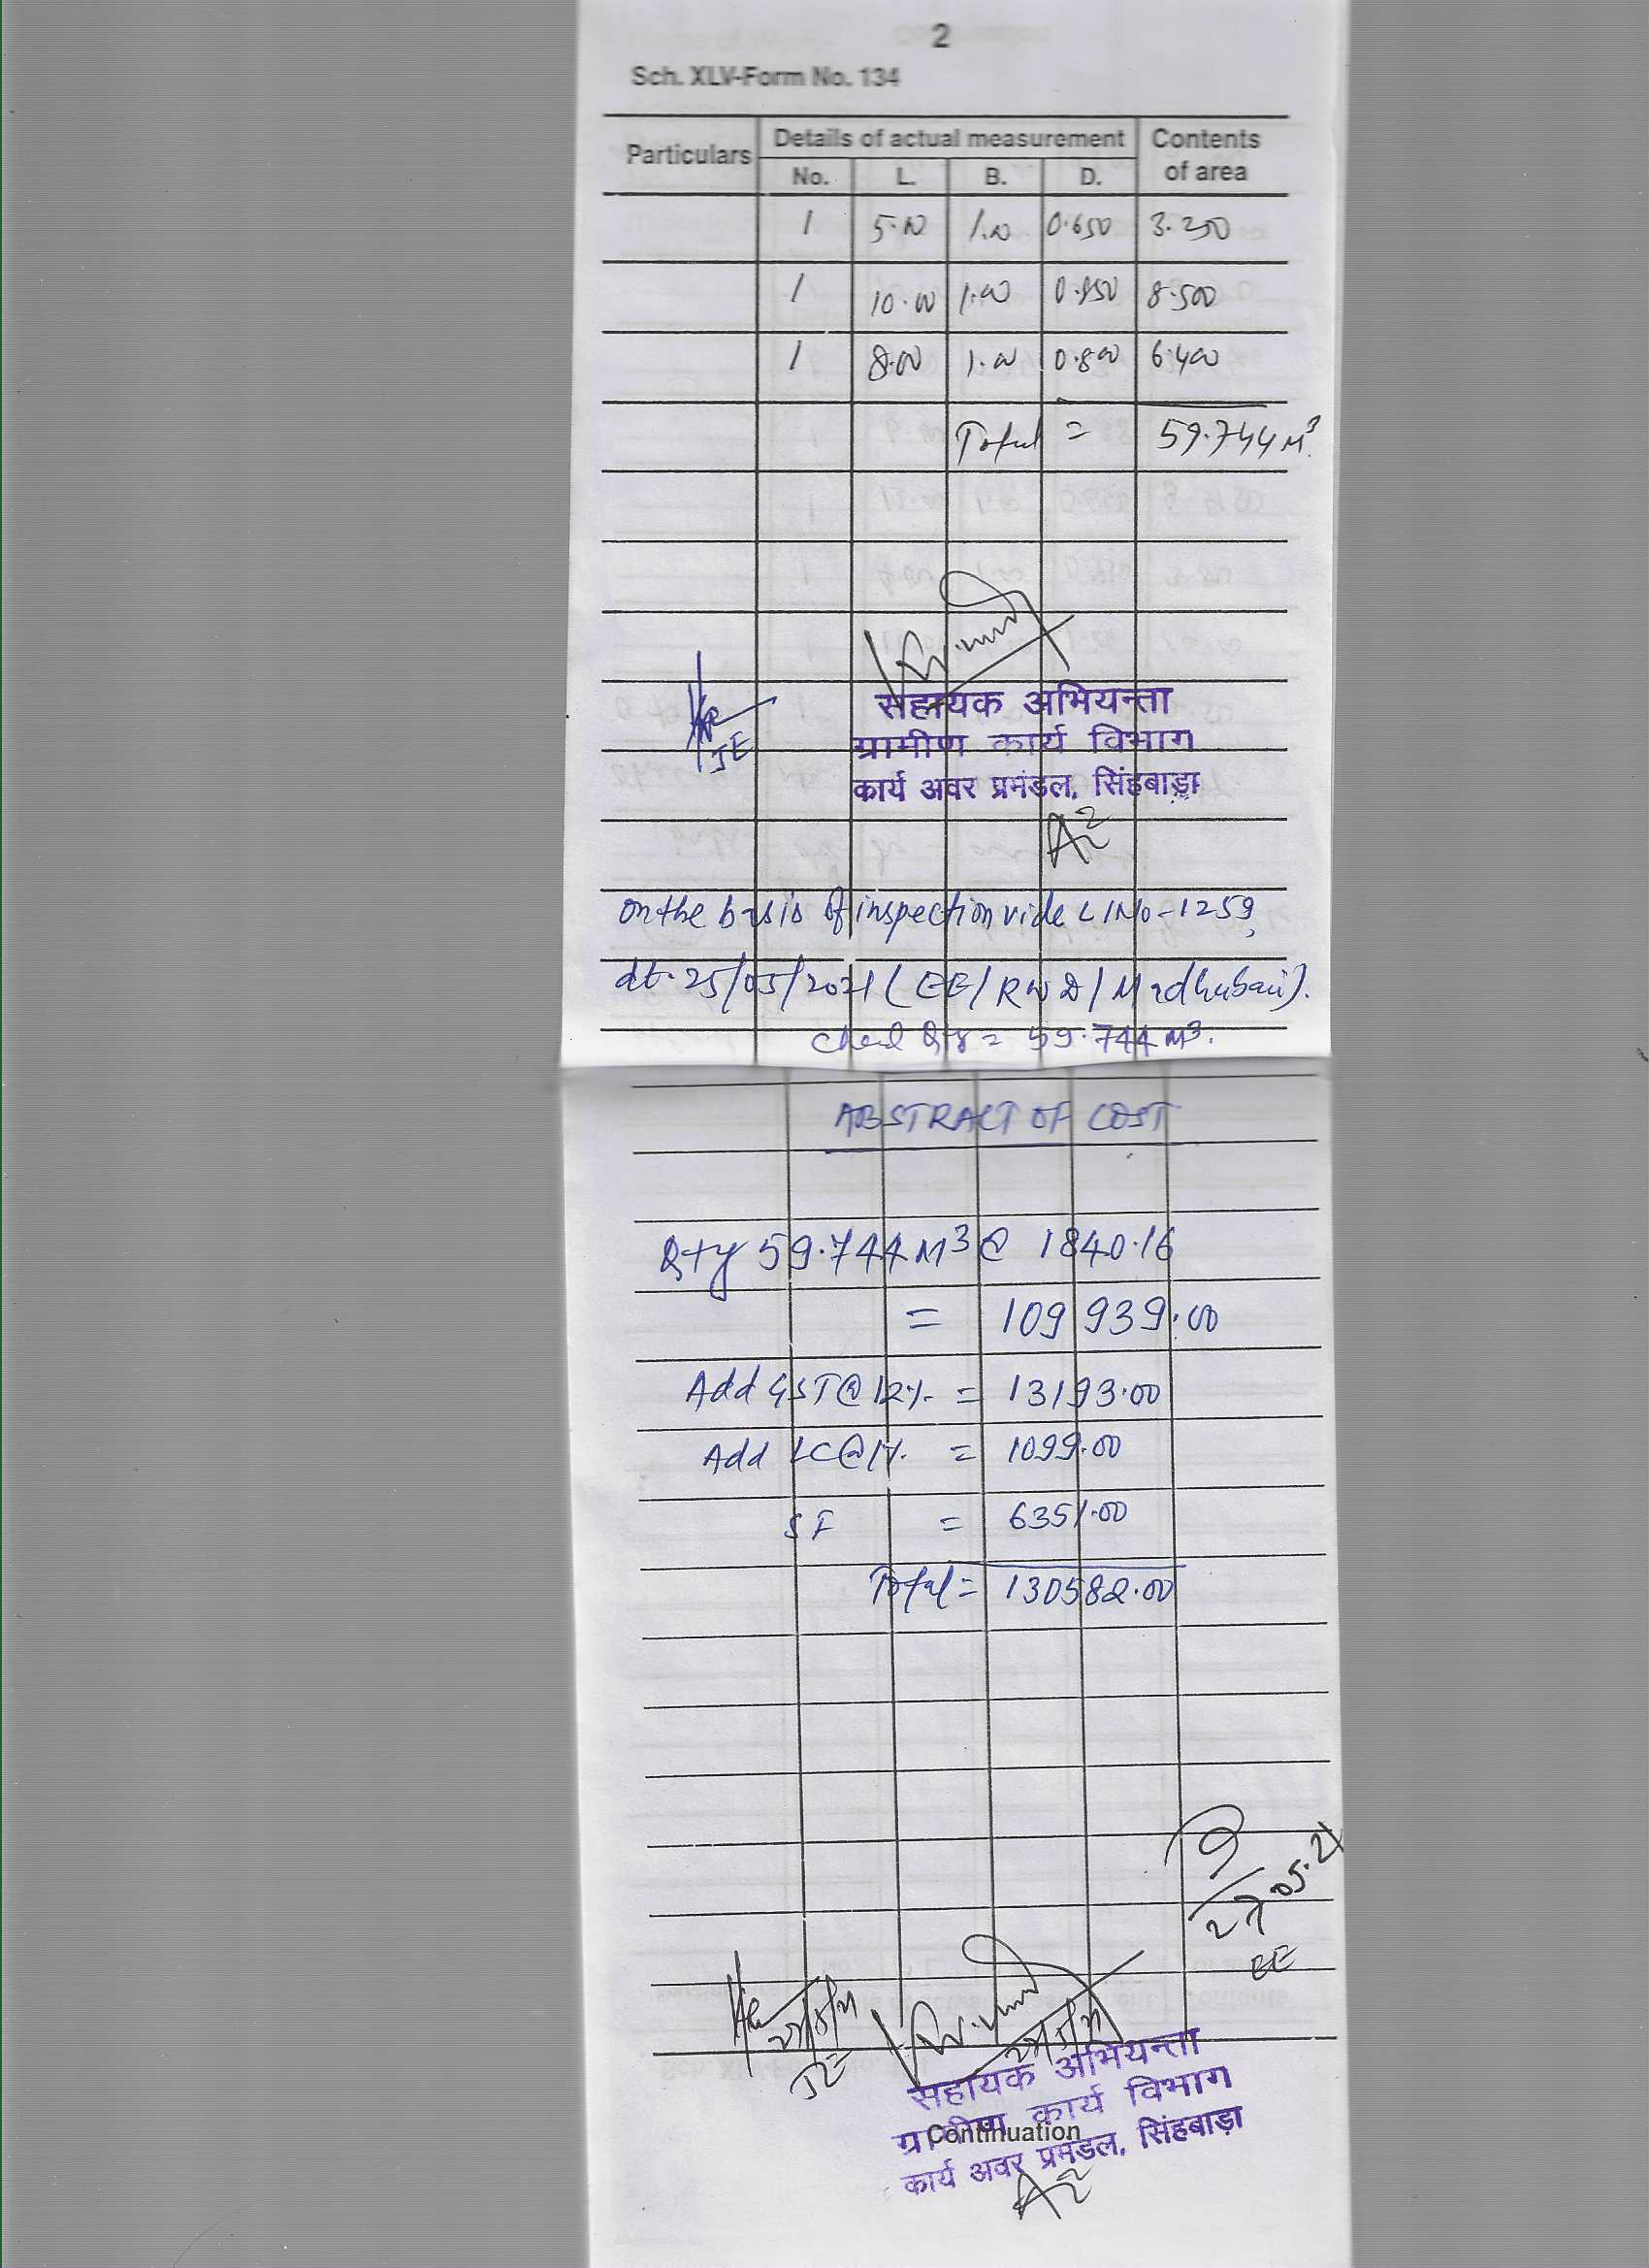 2
Sch. XLV-Form No. 134
Particulars Details of actual measurement Contents of area
No. L. B. D.
1 5.00 1.00 0.650 3.250
1 10.00 1.00 0.850 8.500
1 8.00 1.00 0.800 6.400
Total = 59.744 M³.
JE
सहायक अभियन्ता
ग्रामीण कार्य विभाग
कार्य अवर प्रमंडल, सिंहबाड़ा
on the basis of inspection vide L/No-1259,
dt. 25/05/2021 (EE/RWD/Madhubani).
Qty = 59.744 M³.
ABSTRACT OF COST
Qty 59.744 M³ @ 1840.16
= 109939.00
Add GST@12% = 13193.00
Add LC@1% = 1099.00
SF = 6351.00
Total = 130582.00
27.05.21
EE
27/5/21
27/5/21
JE
सहायक अभियन्ता
ग्रामीण कार्य विभाग
Continuation
कार्य अवर प्रमंडल, सिंहबाड़ा